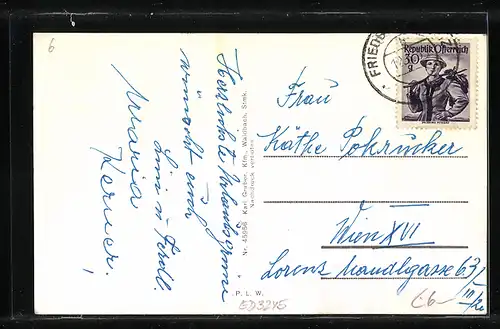 6
Herzlichste Urlaubsgrüsse
wünscht euch
Maria
Lini u Ferdl.
Kerner,
Nr. 45956 Karl Gruber, Kfm., Waldbach, Stmk.
Nachdruck verboten
P. L. W.
FRIEDB
Republik Österreich
30
Frau
Käthe Pokrucker
Wien XVI
Lorenz Mandlgasse 63/
III/20
ED3245
£6–